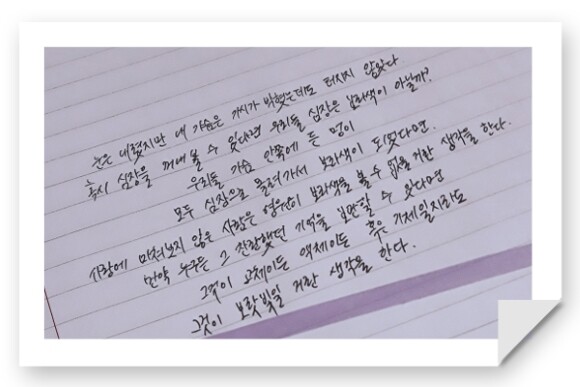 눈은 내렸지만 내 가슴은 가시가 박혔는데도 터지지 않았다
혹시 심장을 꺼내 볼 수 있다면 우리들 심장은 보라색이 아닐까?
우리들 가슴 안쪽에 든 멍이
모두 심장으로 몰려가서 보라색이 되었다면.
사랑에 미쳐보지 않은 사람은 영원히 보라색을 볼 수 없을 거란 생각을 한다.
만약 누구든 그 찬란했던 기억을 보관할 수 있다면
그것이 고체이든 액체이든 혹은 기체일지라도
그것이 보랏빛일 거란 생각을 한다.